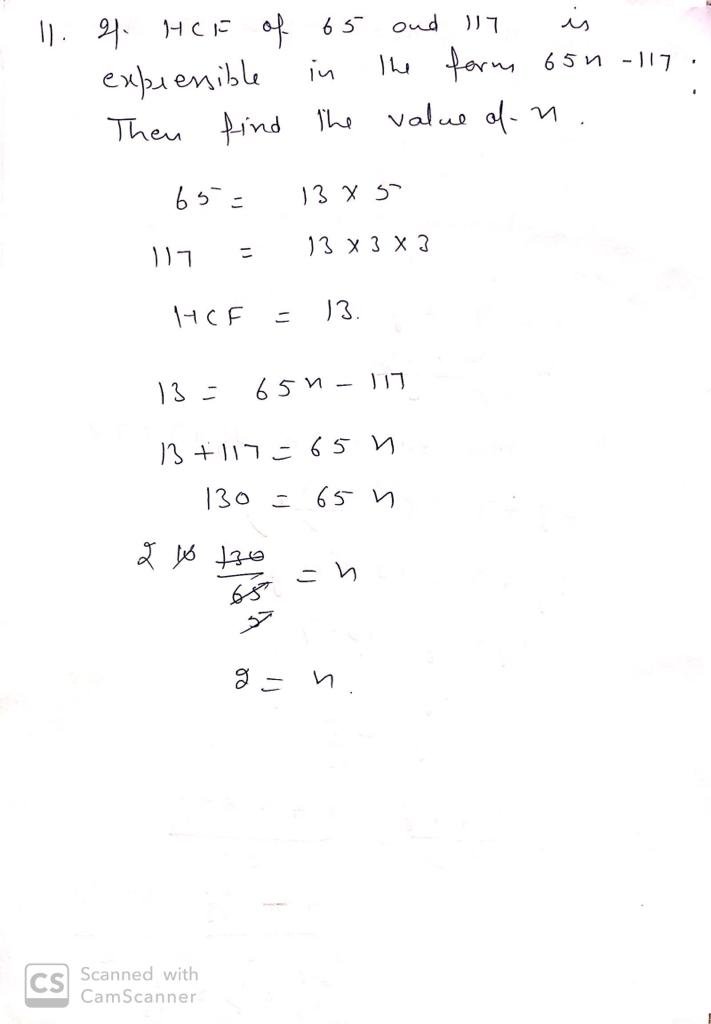 11. If HCF of 65 and 117 is
expressible in the form 65n - 117.
Then find the value of n.
65 = 13 x 5
117 = 13 x 3 x 3
HCF = 13.
13 = 65n - 117
13 + 117 = 65 n
130 = 65 n
2 10 130
= n
65
5
2 = n.
CS Scanned with
CamScanner